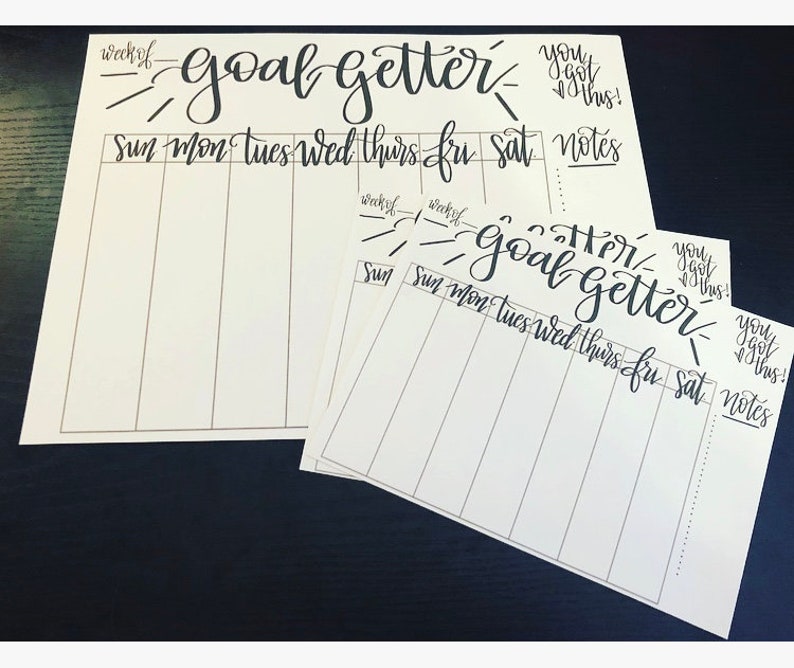 week of
goal getter
you
got
this!
sun mon tues wed thurs fri sat
notes
week of
getter
you
got
this!
sun
week of
goal getter
you
got
this!
sun mon tues wed thurs fri sat
notes